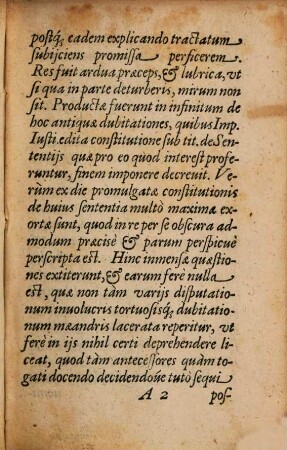 postq́; eadem explicando tractatum
subijciens promissa perficerem.
Res fuit ardua præceps, & lubrica, vt
si qua in parte deturberis, mirum non
sit. Productæ fuerunt in infinitum de
hoc antiquæ dubitationes, quibus Imp.
Iusti. edita constitutione sub tit. de Sen-
tentijs quæ pro eo quod interest profe-
runtur, finem imponere decreuit. Ve-
rùm ex die promulgatæ constitutionis
de huius sententia multò maximæ ex-
ortæ sunt, quod in re per se obscura ad-
modum præcisè & parum perspicuè
perscripta est. Hinc immensæ quæsti-
ones extiterunt, & earum ferè nulla
est, quæ non tàm varijs disputatio-
num inuolucris tortuosisq́; dubitatio-
num mæandris lacerata reperitur, vt
ferè in ijs nihil certi deprehendere li-
ceat, quod tàm antecessores quàm to-
gati docendo decidendoúe tutò sequi
A 2 pos-